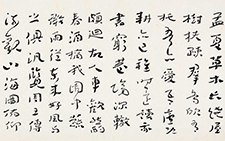 孟夏草木長繞屋
樹扶疏眾鳥欣有
托吾亦愛吾廬既
耕亦已種時還讀我
書窮巷隔深轍
頗迴故人車歡酌
雨從東來好風與
之俱汎覽周王傳
流觀山海圖俯仰